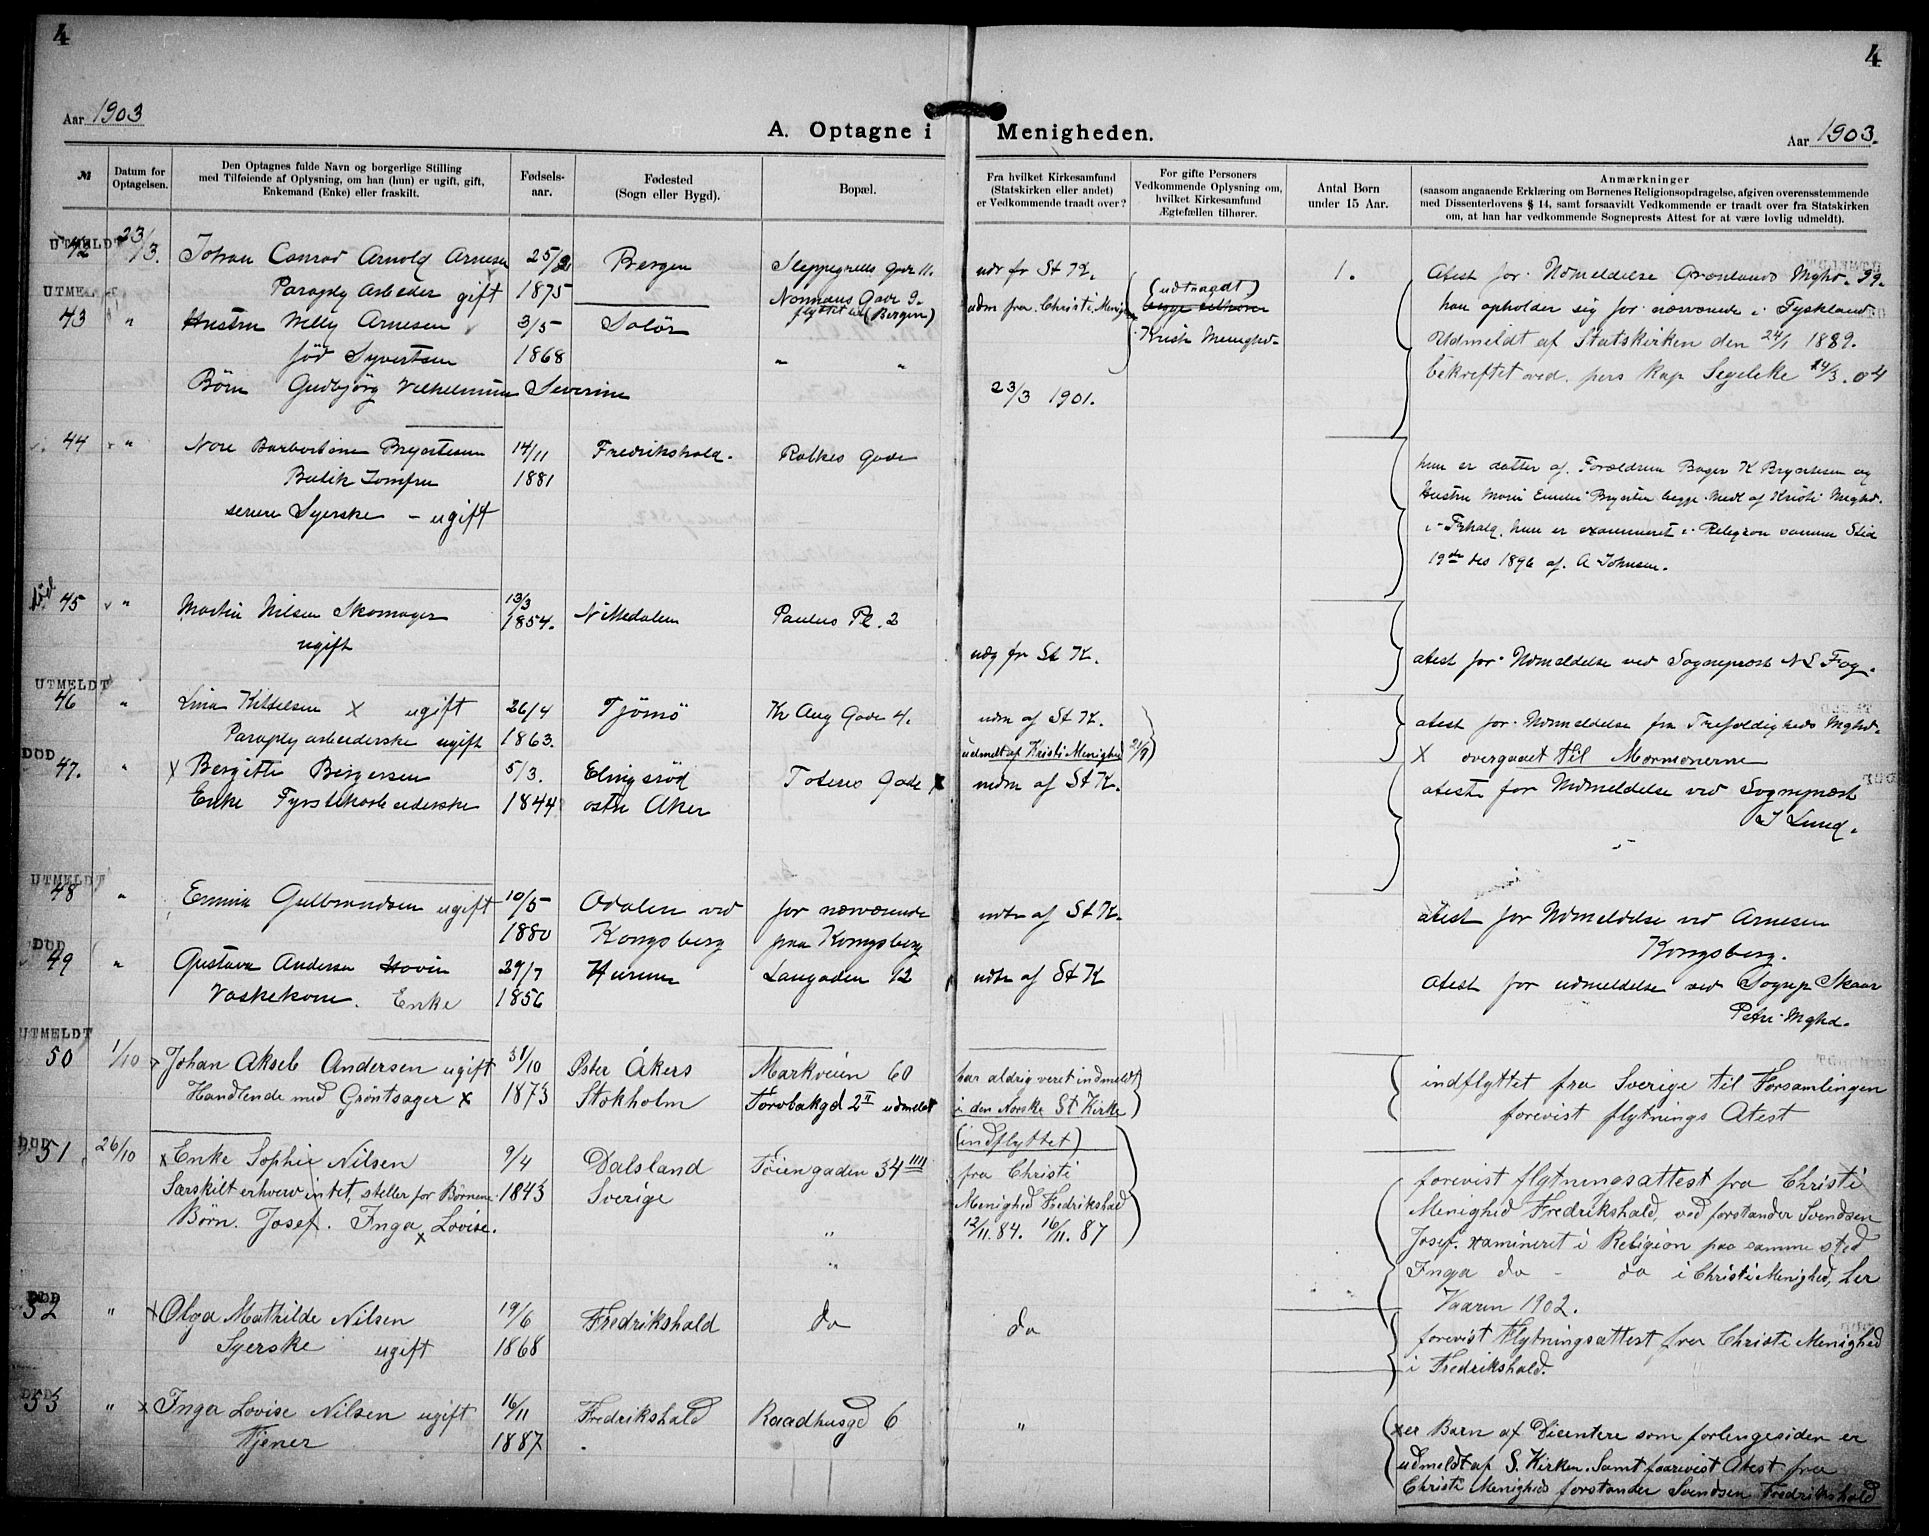 4
4
Aar 1903
A. Optagne i Menigheden.
Aar 1903.
№
Datum for Optagelsen.
Den Optagnes fulde Navn og borgerlige Stilling
med Tilføiende af Oplysning, om han (hun) er ugift, gift,
Enkemand (Enke) eller fraskilt.
Fødselsaar.
Fødested
(Sogn eller Bygd).
Bopæl.
Fra hvilket Kirkesamfund
(Statskirken eller andet)
er Vedkommende traadt over?
For gifte Personers
Vedkommende Oplysning om,
hvilket Kirkesamfund
Ægtefællen tilhører.
Antal Børn
under 15 Aar.
Anmærkninger
(saasom angaaende Erklæring om Børnenes Religionsopdragelse, afgiven overensstemmende
med Dissenterlovens § 14, samt forsaavidt Vedkommende er traadt over fra Statskirken
om, at han har vedkommende Sogneprests Attest for at være lovlig udmeldt).
UTMELDT
42 23/3. Johan Conrad Arnold Arnesen 25/2 Bergen Sleppegrells Gade 11. udr fr St K. 1. Atest for Udmeldelse Grønlands Mghd. 99.
Paraply Arbeder gift 1875 Normans Gade 9. (udtraadt) han opholder sig for nærværende i Tyskland
UTMELDT flyttet til (Bergen)
43 " Hustru Welly Arnesen 3/5 Solör udm fra Christi Menigh begge tilhører
Krist Menighd. Udmeldt af Statskirken den 24/1 1889.
fød Syvertsen 1868 " "
Børn Gudbjörg Vilhelmine Severine 23/3 1901. bekreftet ved pers Kap Segelcke 14/3. 04
44 " Nore Barbertine Bryntesen 14/11 Fredrikshald. Ratkes Gade
Butik Jomfru 1881
senere Syerske - ugift
hun er datter af Forældrene Bager K Bryntesen og
Hustru Marie Emilie Brynte begge Medl af Kristi Meghd.
i Frhald, hun er examineret i Religion samme Sted
19de des 1896 af A Johnsen.
død
45 " Martin Nilsen Skomager 13/3 1854. Nittedalen Paulus Pl. 2
ugift udg fr St K. atest for Udmeldelse ved Sogneprest N S Fog.
UTMELDT
46 " Lina Kittelsen X ugift 26/4 Tjömö Kr Aug Gade 4. udm af St K. atest for Udmeldelse fra Trefoldigheds Mghd.
Paraply arbeiderske ugift 1863. udmeldt af Kristi Menighed 21/9) X overgaaet til Mormonerne
DØD
47. " X Bergitte Birgersen 5/3. Elingsrød Toteus Gade X udm af St K. atest for Udmeldelse ved Sogneprest
Enke Fyrstikarbeiderske 1844 ostre Aker Lund.
UTMELDT
48 " Emma Gulbrandsen ugift 10/5 Odalen ved for nærværende udtr af St K. atest for Udmeldelse ved Arnesen
1880 Kongsberg paa Kongsberg Kongsberg.
DØD
49 " Gustava Andersen Hovin 29/7 Hurum Langaden 12 udtr af St K atest for udmeldelse ved Sognp Skaar
Vaskekone. Enke 1856 Petri Mghd.
UTMELDT
50 1/10 Johan Aksel Andersen ugift 31/10 Øster Åkers Markveien 60 har aldrig veret indmeldt indflyttet fra Sverige til Forsamlingen
Handlende med Gröntsager X 1873 Stokholm Torvbakgd 2 II udmeldt i den Norske St Kirke forevist flytnings Atest
DØD
51 26/10 X Enke Sophie Nilsen 9/4 Dalsland Töiengaden 34 IIII (indflyttet) forevist flytningsattest fra Christi
Særskilt erhverv intet, steller for Børnene 1843 Sverige fra Christi Menighed Fredrikshald, ved forstander Svendsen
Børn. Josef. Inga X Lovise. " Menighed Fredrikshald Josef. examineret i Religion paa samme sted
12/11. 84. 16/11. 87
" Inga do - do i Christi Menighed, her
Vaaren 1902.
DØD
52 " X Olga Mathilde Nilsen 19/6 Fredrikshald do do forevist Flytningsattest fra Christi Menighed
Syerske ugift 1868 i Fredrikshald.
DØD
53 " X Inga Lovise Nilsen ugift 16/11 Fredrikshald Raadhusgd 6 " X er Barn af Dicentere som forlengesiden er
Tjener 1887 udmeldt af S. Kirken. Samt foorevist Atest fra
Christi Menigheds forstander Svendsen Fredrikshald